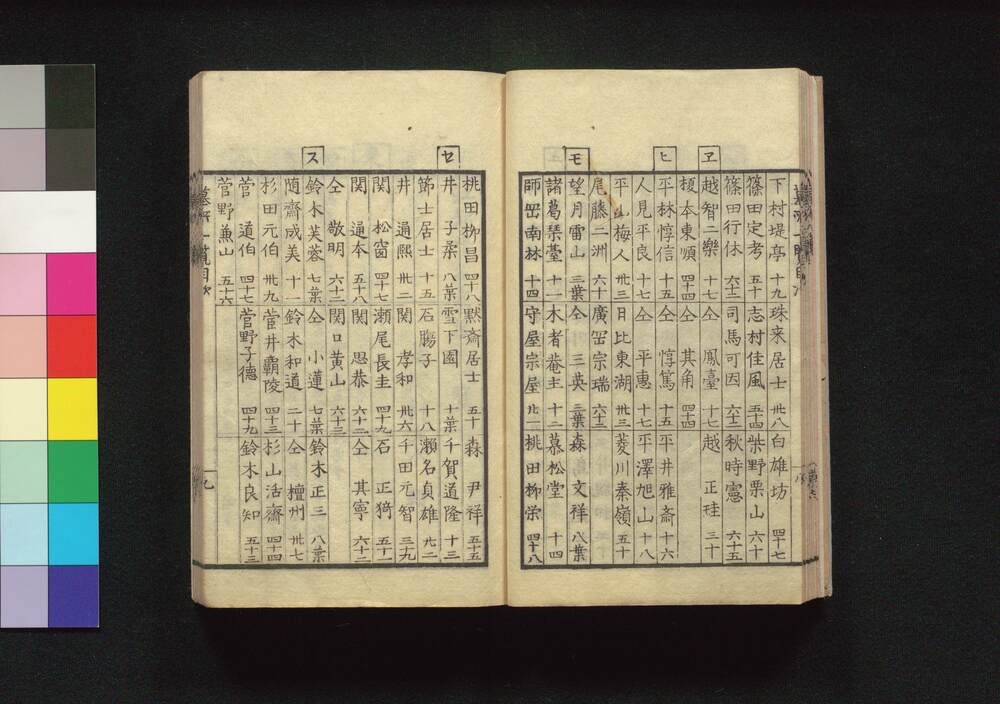 ヱ
ヒ
モ
下村堤亭 十九 珠来居士 卅八 白雄坊 四十七
篠田定考 五十 志村佳風 五十四 柴野栗山 六十
篠田行休 六十二 司馬可因 六十二 秋時憲 六十五
越智二樂 十七 仝 鳳臺 十七 越 正珪 三十
榎本東順 四十四 仝 其角 四十四
平林惇信 十五 仝 惇篤 十五 平井雅斎 十六
人見平良 十七 仝 平惠 十七 平澤旭山 十八
平山梅人 卅三 日比東湖 卅三 菱川秦嶺 五十
尾藤二洲 六十 廣罡宗瑞 六十二
望月雷山 三葉 仝 三英 三葉 森 文祥 八葉
諸葛琴臺 十一 木者菴主 十二 慕松堂 十四
師罡南林 十四 守屋宗屋 廿一 桃田柳栄 四十八
セ
ス
桃田柳昌 四十八 默斎居士 五十 森 尹祥 五十五
井 子柔 八葉 雪下園 十葉 千賀道隆 十三
節士居士 十五 石膓子 十八 瀬名貞雄 廿二
井 通熙 卅二 関 孝和 卅六 千田元智 三十九
関 松窗 四十四 瀬尾長圭 四十九 石 正猗 五十一
関 通本 五十八 関 思恭 六十二 仝 其寧 六十二
仝 敬明 六十二 関口黄山 六十三
鈴木芙蓉 七葉 仝 小蓮 七葉 鈴木正三 八葉
随齋成美 十一 鈴木和道 二十 仝 檀州 卅七
杉田元伯 卅九 菅井霸陵 四十三 杉山活齋 四十四
菅 道伯 四十七 菅野子德 四十九 鈴木良知 五十三
菅野兼山 五十六
墓所一覧目次
九